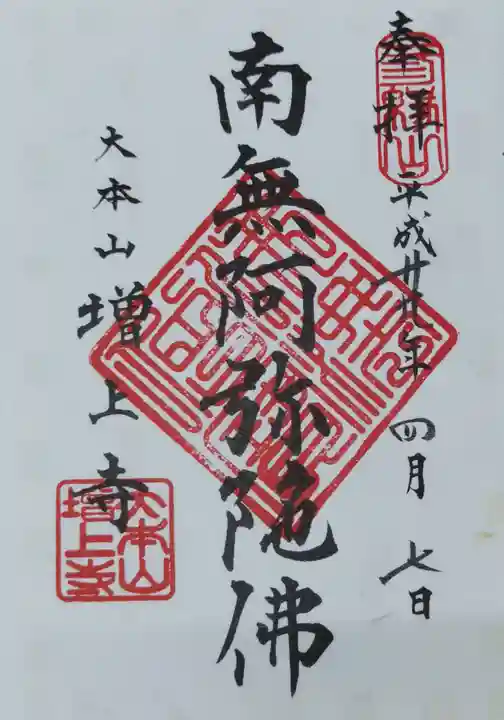 奉拝
平成廿九年 四月 七日
南無阿弥陀佛
大本山 増上寺
大本山
増上寺